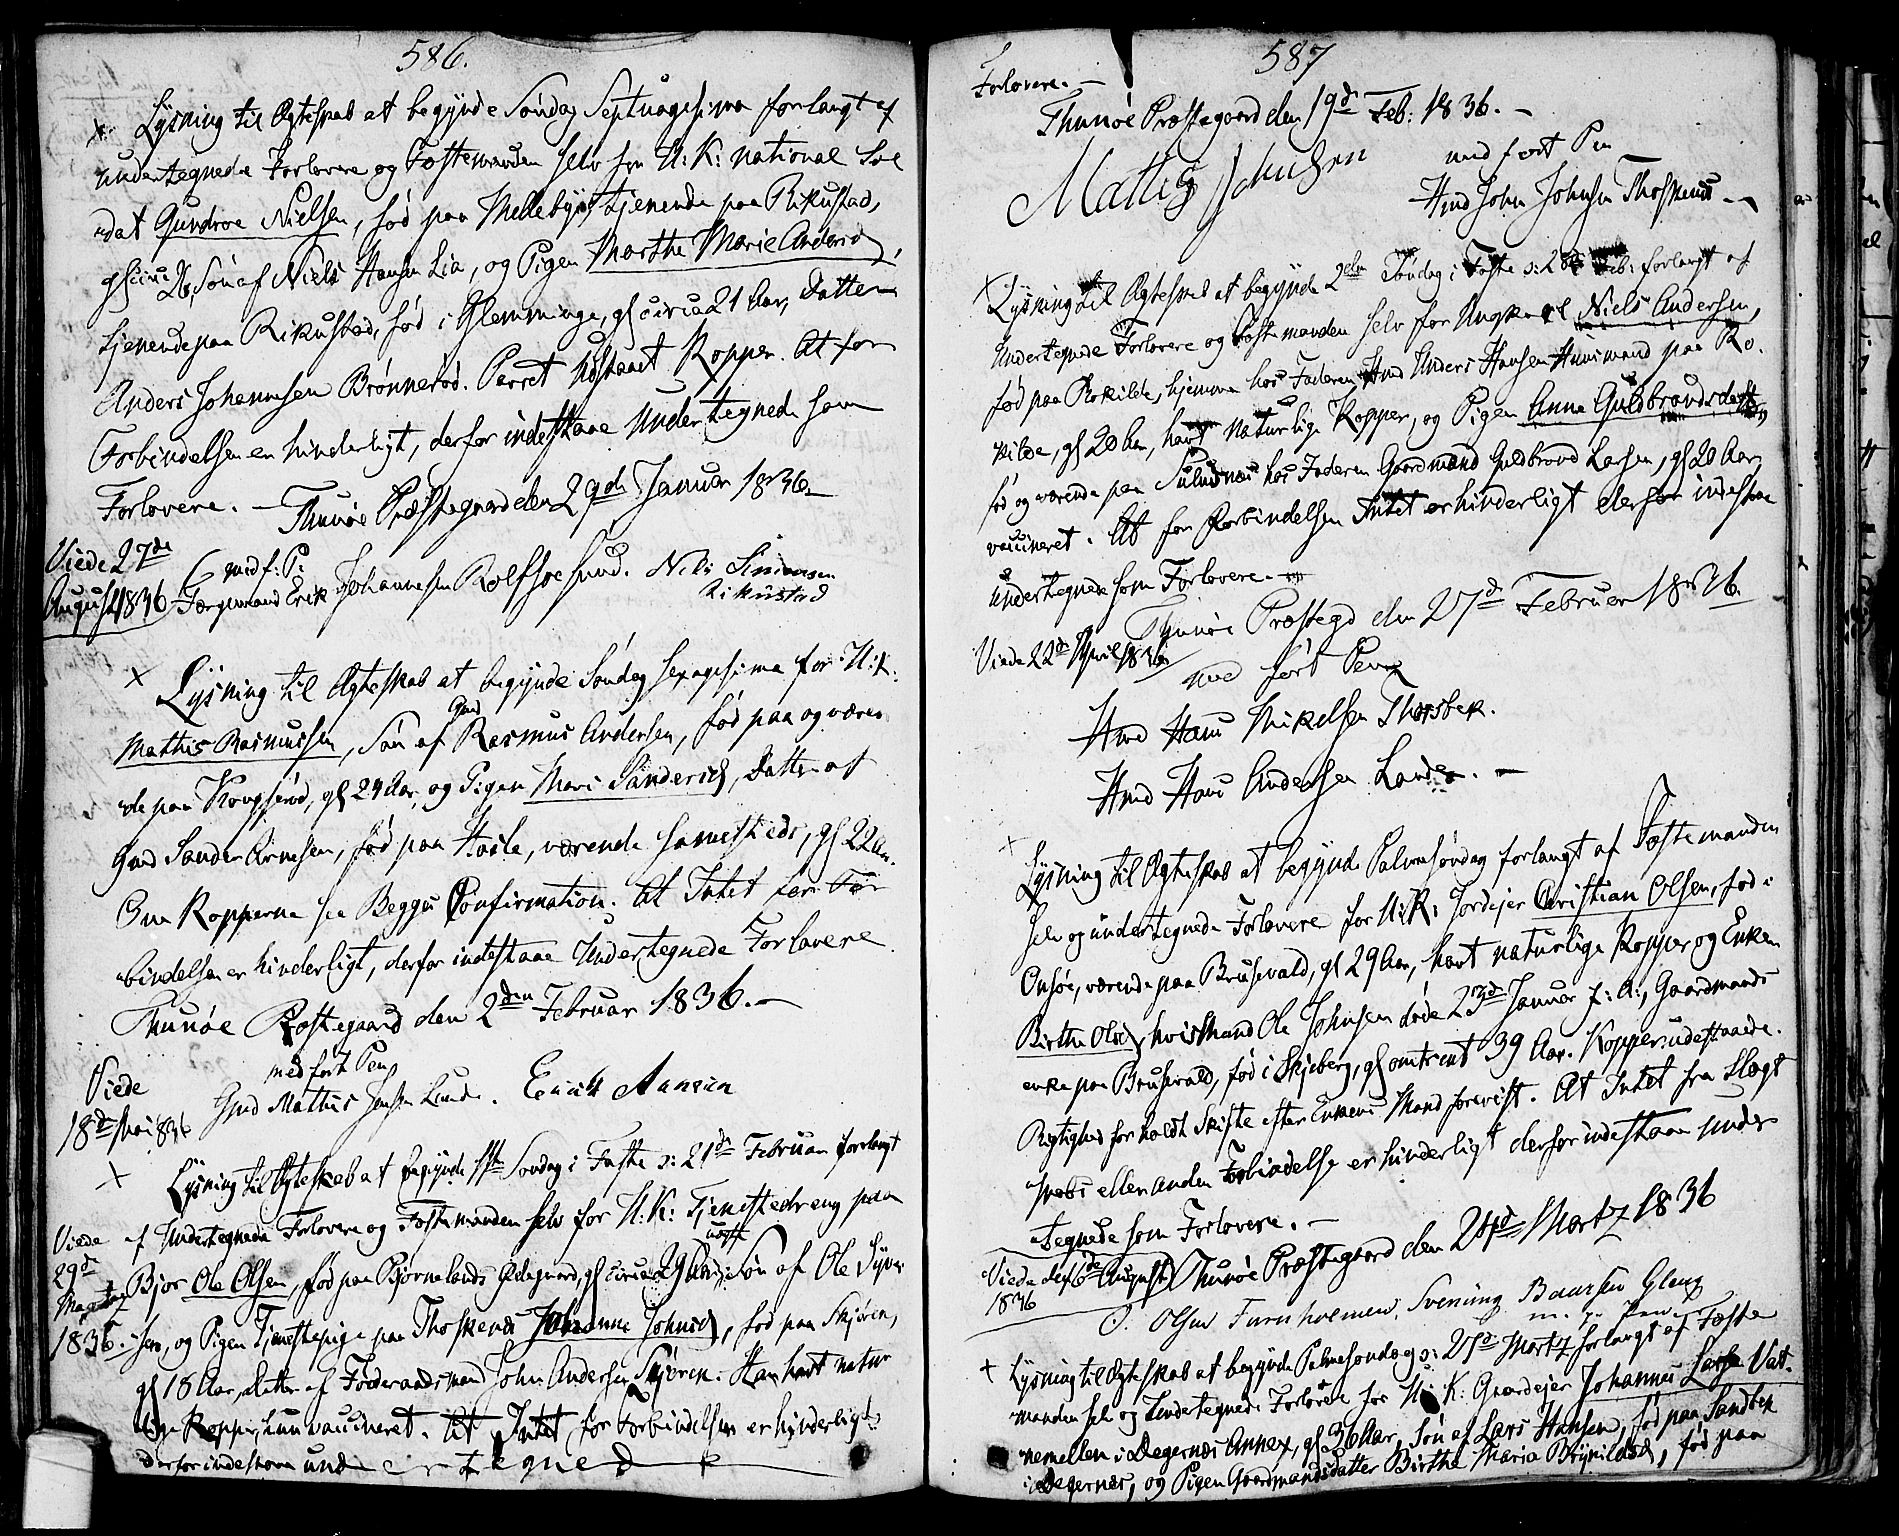 586.
Lysning til Ægteskab at begynde Søndag Septuagesima forlangt af
undertegnede Forlovere og Fæstemanden selv for U: K: national Sol
dat Gundroe Nielsen, fød paa Mellebye, tjenende paa Rikustad,
gl circa 26, Søn af Niels Hansen Lia, og Pigen Marthe Marie Andersd,
tjenende paa Rikustad, fød i Glemminge, gl circa 21 Aar, Datter
Anders Johannesen Brønnerød. Parret udstaaet Kopper. At for
Forbindelsen er hinderligt, derfor indestaae Undertegnede som
Forlovere. - Thunøe Præstegaard den 29de Januar 1836.
Viede 27de
August 1836
med f: P:
Færgemand Erik Johannesen Rolfsøesund. Nils Simensen
Rikustad
× Lysning til Ægteskab at begynde Søndag Sexagesima for U: K.
Gmd
Mathis Rasmussen, Søn af Rasmus Andersen, fød paa og væren
de paa Kongsrød, gl 24 Aar, og Pigen Mari Sandersd, Datter af
Gmd Sander Arnesen, fød paa Hasle, værende sammesteds, gl 22 Aar.
Om Kopperne see Begges Confirmation. At Intet for For
bindelsen er hinderligt, derfor indestaae Undertegnede Forlovere
Thunøe Præstegaard den 2den Februar 1836. -
Viede
18de Mai 1836
med ført Pen
Gmd Mathis Jensen Lunde. Erick Ansen
× Lysning til Ægteskab at begynde 1ste Søndag i Faste o: 21de Februar forlangt
Viede
29de
1836.
af Undertegnede Forlovere og Fæstemanden selv for U: K: Tjenestedreng paa
Bjor Ole Olsen, fød paa Bjørnelands Ødegaard, gl circa 29 Aar, Søn af Ole Syver
sen, og Pigen Tjenestepige paa Thoskend Johanne Johnsd, fød paa Skjøren,
gl 18 Aar, Datter af Føderaadsmand John Andersen Skjøren. Han havt natur
lige Kopper, hun vaccineret. At Intet for Forbindelsen er hinderligt,
derfor indestaae undertegned
587
Forlovere. -
Thunøe Præstegaard den 19de Feb: 1836. -
med ført Pen
Hmd John Johnsen Thoskend -
× Lysning til Ægteskab at begynde 2den Søndag i Faste o: 28de Feb: forlangt af
Undertegnede Forlovere og Fæstemanden selv for Ungkarl Niels Andersen,
fød paa Rokilde, hjemme hos Faderen Hmd Anders Hansen Huusmand paa Ro
kilde, gl 20 Aar, havt naturlige Kopper, og Pigen Anne Guldbrandsdatter,
fød og værende paa hos Faderen Gaardmand Guldbrand Larsen, gl 20 Aar,
vaccineret. At for Forbindelsen Intet er hinderligt derfor indestaae
undertegnede som Forlovere. -
Thunøe Præstegd den 27de Februar 1836.
Viede 22de April 1836
med ført Pen
Hmd Hans Mikelsen Thorsbek.
Hmd Hans Andersen Lande. -
+
Lysning til Ægteskab at begynde Palmesøndag forlangt af Fæstemanden
selv og undertegnede Forlovere for U: K: Jordejer Christian Olsen, fød i
Onsøe, værende paa Brusevald, gl 29 Aar, havt naturlige Kopper og Enken
Birthe Olsd, hvis Mand Ole Johnsen døde 23de Januar f: A:, Gaardmands
enke paa Brusevald, fød i Skjeberg, gl omtrent 39 Aar. Kopper udestaaede.
Rigtighed for holdt Skifte efter Enkens Mand foreviist. At Intet fra Slægt
skabs eller anden Forbindelse er hinderligt derfor indestaae under
tegnede som Forlovere. -
Thunøe Præstegaard den 24de Martz 1836
Viede den 6de August
1836
O. Olsen Furuholmen. Svening Baarsen Gleng
m. f. Pen
+ Lysning til Ægteskab at begynde Palmesøndag o: 27de Martz forlangt af Fæste
manden selv og Undertegnede Forlovere for U: K: Gaardejer Johannes Larsen Vat
nemellen i Degernes Annex, gl 30 Aar, Søn af Lars Hansen, fød paa Sandbek
i Degernes, og Pigen Gaardmandsdatter Birthe Maria Brynildsd, fød paa